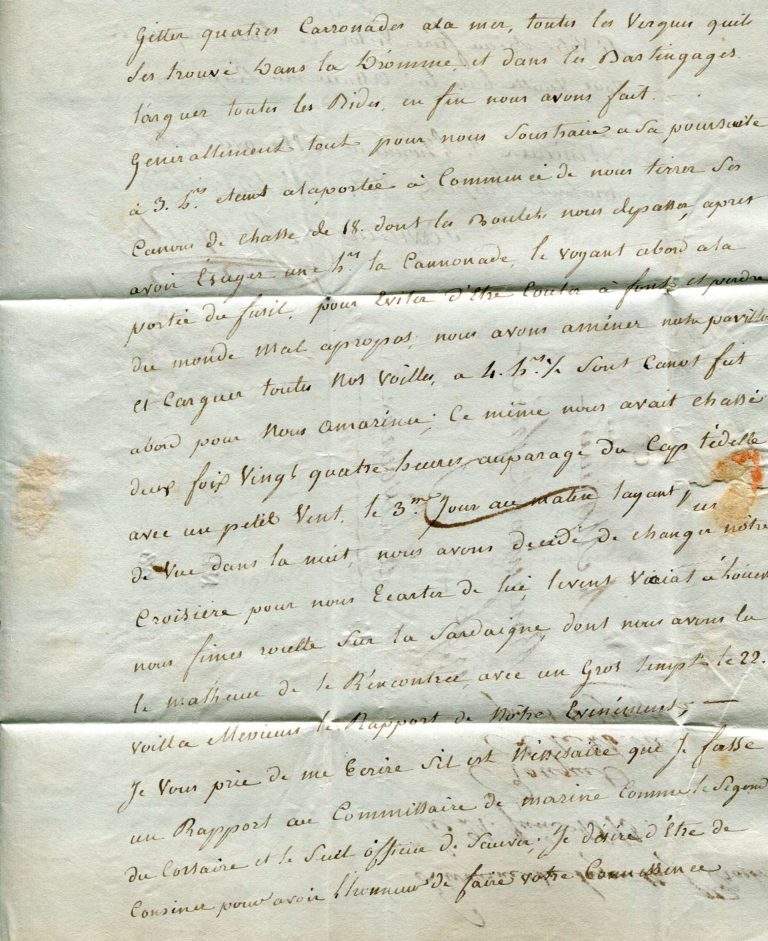 Getter quatres Carronades ala mer, toutes les Vergues quil
Ses trouvé Dans la Drômme, et dans les Bastingages.
larguer toutes les Rides, en fin nous avons fait
Generallement tout pour nous Soustraire a Sa poursuite
à 3. h.rs etent alaportée à Commencé de nous tirrer Ses
Canons de Chasse de 18. dont les Boulets nous depasser, apres
avoir une h.re la Cannonade, le voyant abord ala
portée du fusil, pour Eviter d'Etre Couler à fond et perdre
du monde mal apropos, nous avons améner notre pavillon
et Carguer toutes Nos Voilles, a 4. h.rs ½ Sont Canot fut
abord pour Nous amariner; Ce même nous avait Chassé
deux foix Vingt quatre heures auparage du Cap
avec un petit Vent. le 3.me Jour au matin layant
de Vue dans la nuit, nous avons decidé de changer notre
Croisière pour nous Ecarter de lui, levent
nous fimes routte Sur la Sardaigne, dont nous avons lu
le malheur de le Rencontrer, avec un Gros temps le 22.
voilla Messieurs le Rapport de Notre Evénement, —
Je Vous prie de me Ecrire Sil est Nésésaire que J. fasse
un Rapport au Commissaire de marine Comme le Segond
du Corsaire et le Seul officier de Sauver; Je désire d'Etre de
pour avoir lhonneur de faire votre Connessence